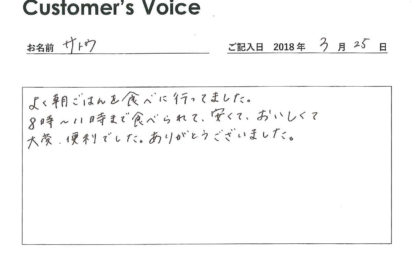 Customer's Voice
お名前 サトウ ご記入日 2018 年 3 月 25 日
よく朝ごはんを食べに行ってました。
8時～11時まで食べられて、安くて、おいしくて
大変 便利でした。ありがとうございました。